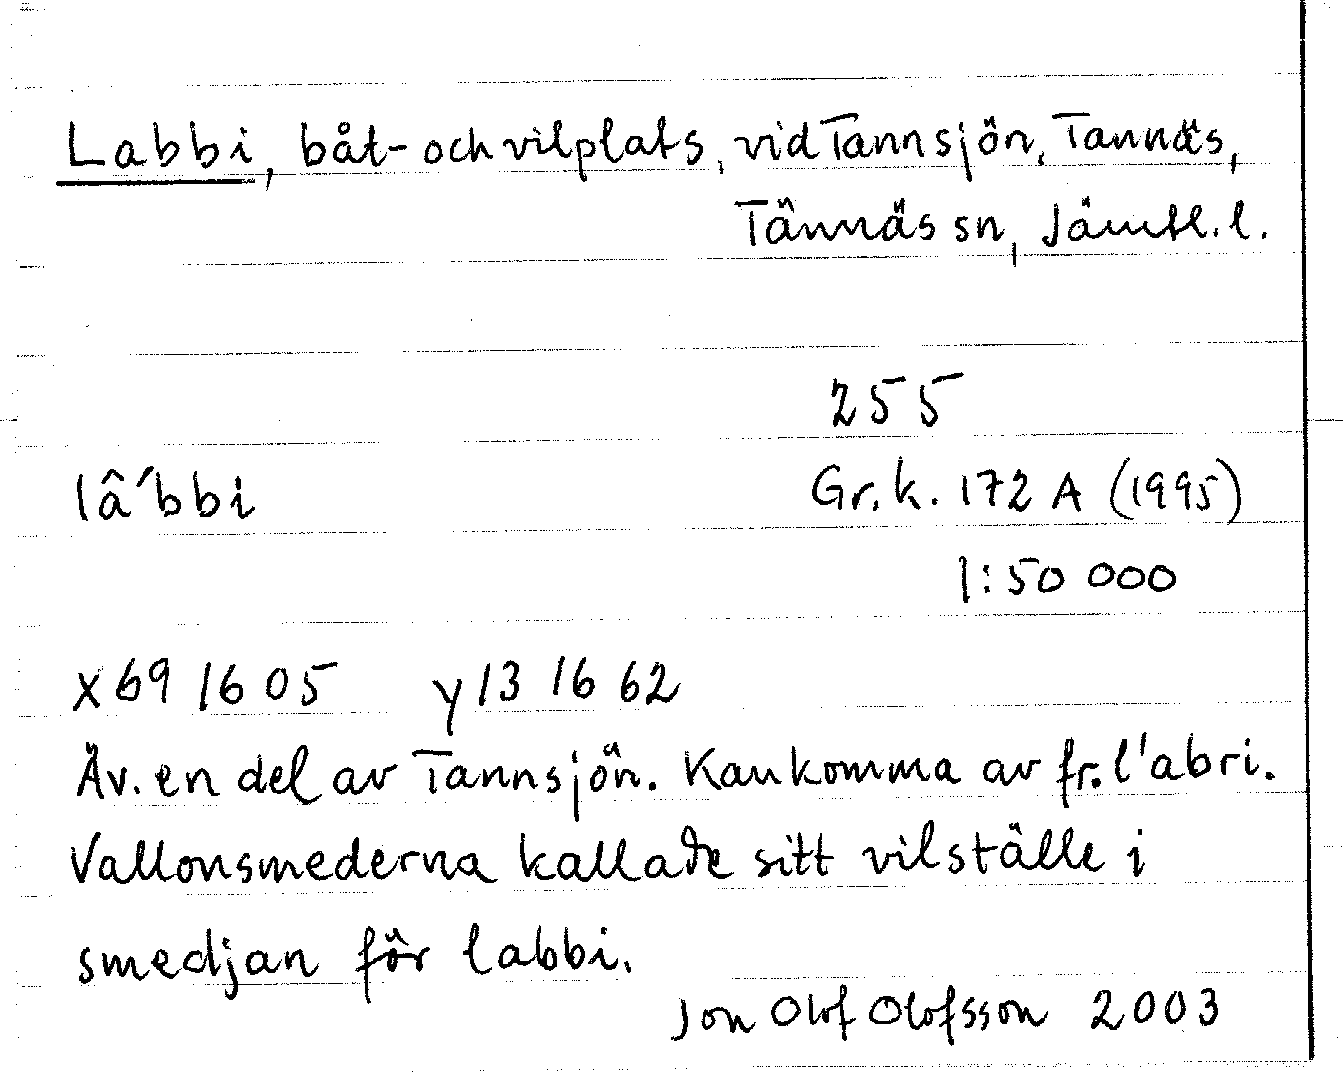 Labbi, båt- och vilplats, vid Tannsjön, Tannäs,
Tännäs sn, Jämtl. l.
255
lâ´bbi Gr.k. 172 A (1995)
1:50 000
x 69 16 05 y 13 16 62
Äv. en del av Tannsjön. Kan komma av fr. l'abri.
Vallonsmederna kallade sitt vilställe i
smedjan för labbi.
Jon Olof Olofsson 2003